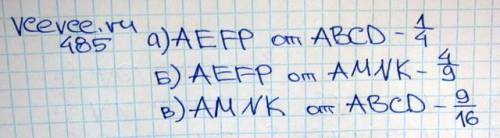 veevee.ru
485 а) AEFP от ABCD - 1/4
б) AEFP от AMNK - 4/9
в) AMNK от ABCD - 9/16